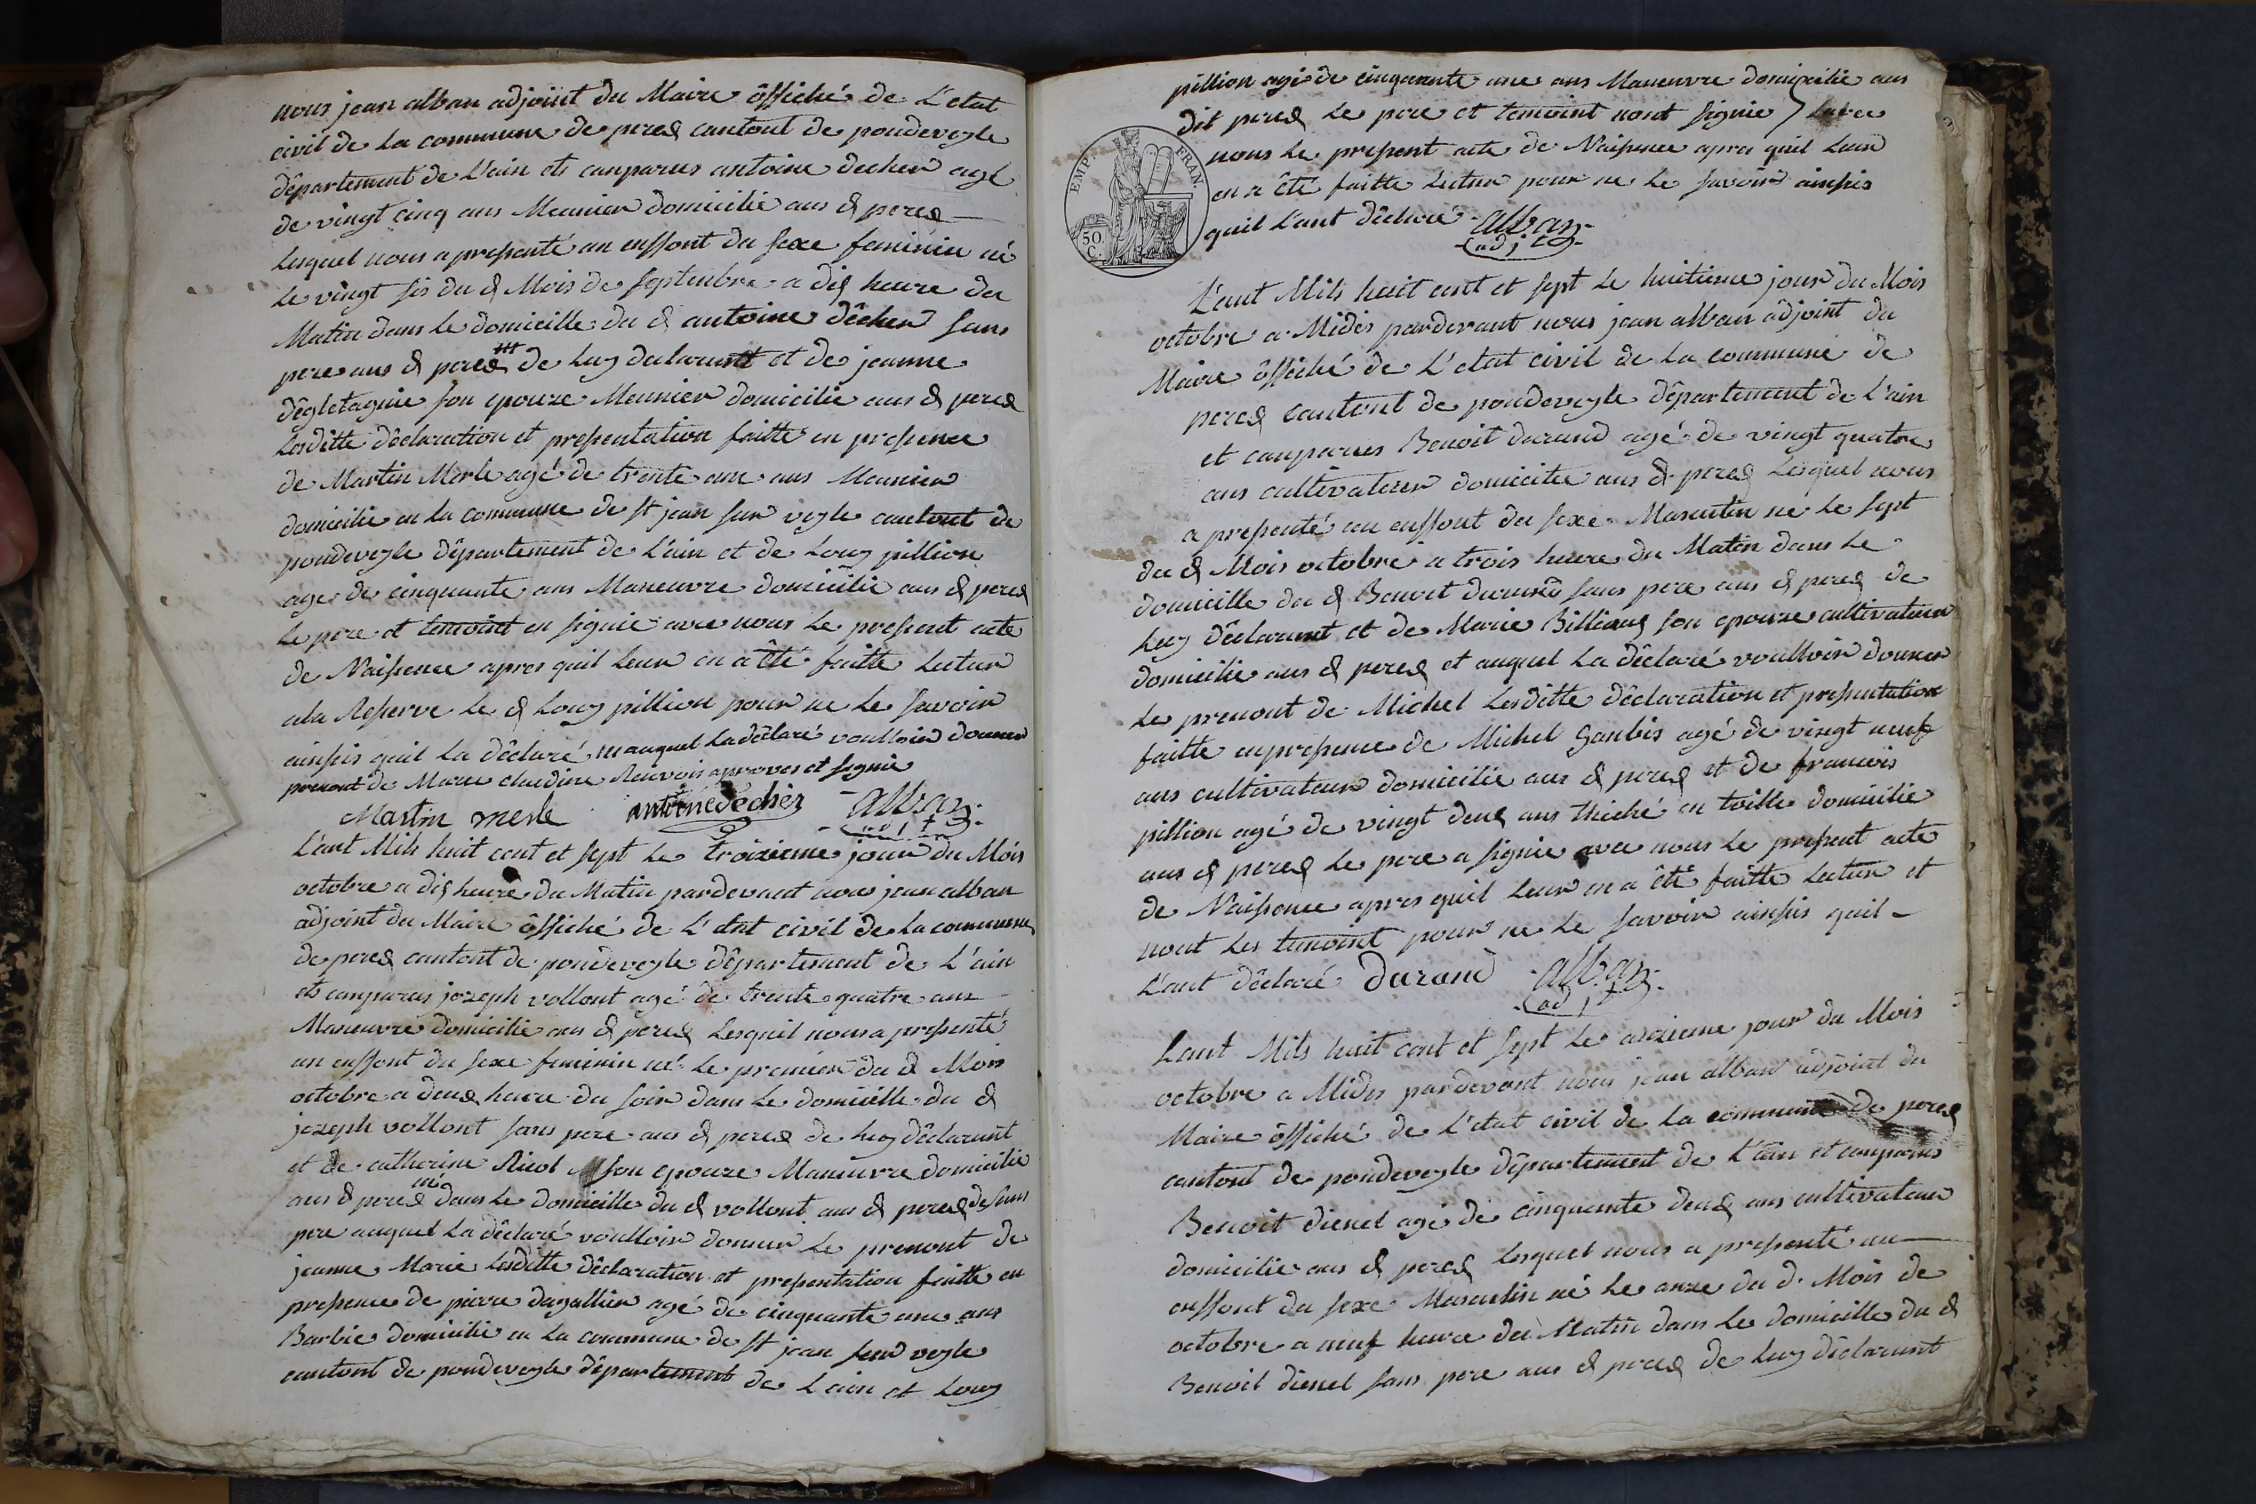 nous jean alban adjoint du Maire ôffiché de L'etat
civil de La commune de perex cantont de pondeveyle
dêpartement de L'ain ets conparus antoine decher agé
de vingt cinq ans Meunier domicilié aus d perex
Lesquel nous a presenté un enffont du sexe feminin né
Le vingt sis du d Mois de septenbre a dix heure du
Matin dans Le domicille du d antoine dêcher sans
pere aus d perex de Luy declarant et de jeanne
dêgletagnie son epouze Meunier domicilie aus d perex
Lesditte dêclaration et presentation faitte en presence
de Martin Merle agé de trente une ans Meunier
domicilie en La commune de st jean sur veyle cantont de
pondeveyle dêpartement de L'ain et de Louy pillion
age de cinquante ans Maneuvre domicilié aus d perex
Le pere et temoint en signie avec nous Le present acte
de Naissence apres quil Leur en a êté faitte Lectur
ala Reserve Le d Louy pillion pour ne Le savoir
ainsis quil La dêclaré auquel La dêclaré voulloir donner
prenont de Marie claudine Renvois aproves et signie
Martin merle antoine décher alban
adjt
L'ant Mils huit cent et sept Le troizieme jour du Mois
octobre a dix heure du Matin pardevant nous jean alban
adjoint du Maire ôffiché de L'etat civil de La commune
de perex cantont de pondeveyle dêpartement de L'ain
ets conparus jozeph vollont agé de trente quatre ans
Maneuvre domicilié aus d perex Lesquel nous a presenté
un enffont du sexe feminin né Le premier du d Mois
octobre a deux heure du soir dans Le domicille du d
jozeph vollont sans pere aus d perex de Luy dêclarant
et de catherine Ricol son epouze Maneuvre domicilié
aus d perex dans Le domicille du d vollont aus d perex de sans
pere auquel La dêclaré voulloir donner Le prenont de
jeanne Marie Lesditte dêclaration et presentation faitte en
presence de pierre dagallier agé de cinquante une ans
Barbie domicilié en La commune de st jean sur veyle
cantont de pondeveyle dêpartement de L'ain et Louy
pillion agé de cinquante une ans Maneuvre domicilié aus
dit perex Le pere et temoint nont signie avec
nous Le present acte de Naissence apres quil Leur
en a êté faitte Lectur pour ne Le savoir ainsis
quil L'ant dêclaré alban
adjt
EMP. FRAN.
50.
C.
L'ant Mils huit cent et sept Le huitieme jour du Mois
octobre a Midis pardevant nous jean alban adjoint du
Maire ôffiché de L'etat civil de La commune de
perex cantont de pondeveyle dêpartement de L'ain
et conparus Benoit durand agé de vingt quatre
ans cultivateur domicilie aus d perex Lesquel nous
a presenté un enffont du sexe Masculin né Le sept
du d Mois octobre a trois heure du Matin dans Le
domicille du d Benoit durand sans pere aus d perex de
Luy dêclarant et de Marie Billioux son epouze cultivateur
domicilie aus d perex et auquel La dêclaré voulloir donner
Le prenont de Michel Lesditte dêclaration et presentation
faitte enpresence de Michel Gonbis agé de vingt neuf
ans cultivateur domicilie aus d perex et de francois
pillion agé de vingt deux ans thiché en toille domicilié
aus d perex Le pere a signie avec nous Le present acte
de Naissence apres quil Leur en a êté faitte Lectur et
nont Les temoint pour ne Le savoir ainsis quil
L'ant dêclaré durand alban
adjt
Lant Mils huit cent et sept Le onzieme jour du Mois
octobre a Midis pardevant nous jean alban adjoint du
Maire ôffiché de L'etat civil de La commune de perex
cantont de pondeveyle dêpartement de L'ain et conparus
Benoit dienel agé de cinquante deux ans cultivateur
domicilié aus d perex Lesquel nous a presenté un
enffont du sexe Masculin né Le onze du d. Mois de
octobre a neuf heure du Matin dans Le domicille du d
Benoit dienel sans pere aus d perex de Luy dêclarant